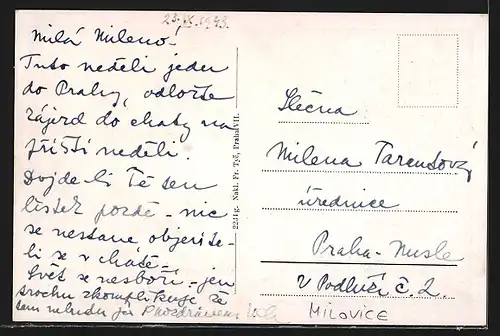 23.IX.1943.
Milá Mileno!
Tuto neděli jedu
do Prahy, odložte
zájezd do chaty na
příští neděli.
Dojde-li Tě ten
lístek pozdě - nic
se nestane, objevíte-
li se v chatě -
Svět se nezboří - jen
trochu zkomplikuje, že
tam nebudu já. Pozdravem
2231g. Nakl. Fr. Tyč, Praha VII.
Slečna
Milena Tarantová,
úřednice
Praha - Nusle
V Podluží č. 2.
MILOVICE